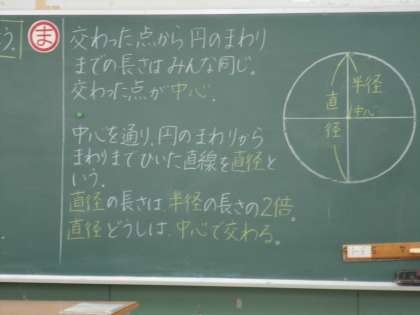 う。
ま
交わった点から円のまわり
までの長さはみんな同じ。
交わった点が中心。
中心を通り、円のまわりから
まわりまでひいた直線を直径と
いう。
直径の長さは、半径の長さの2倍。
直径どうしは、中心で交わる。
半径
中心
直径